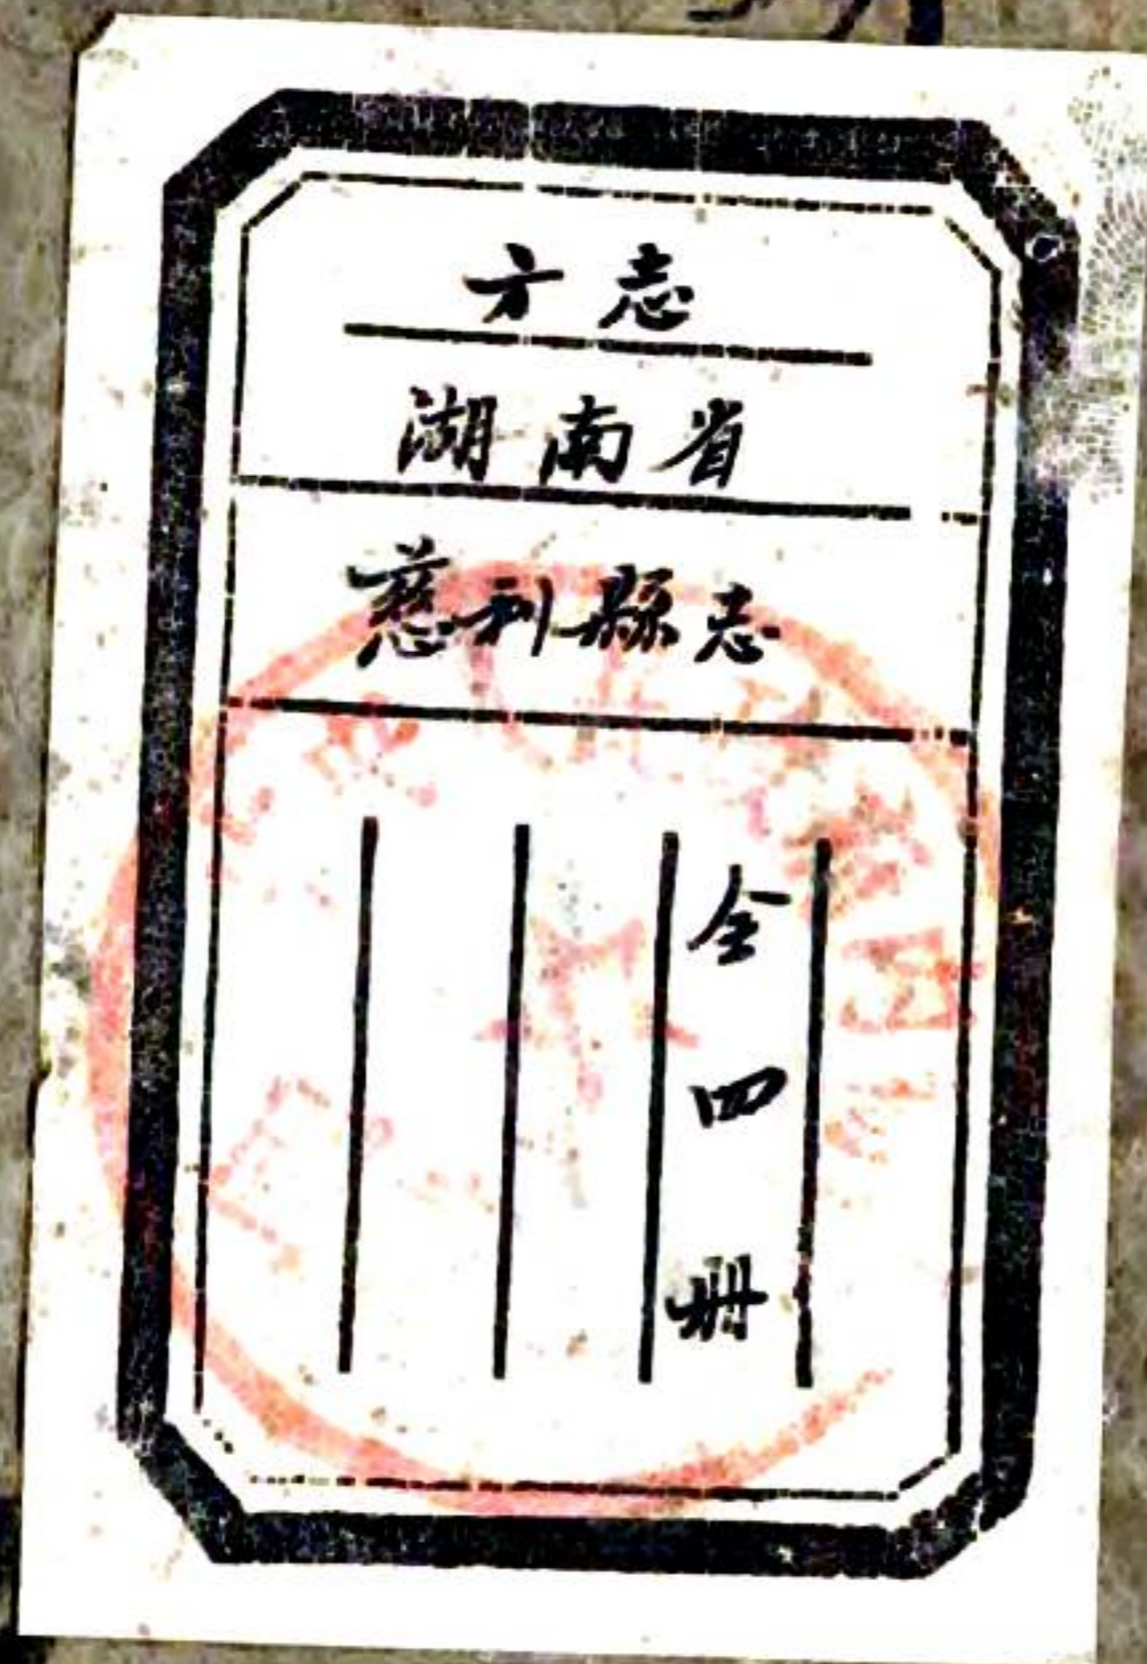 方志
湖南省
慈利縣志
全四册